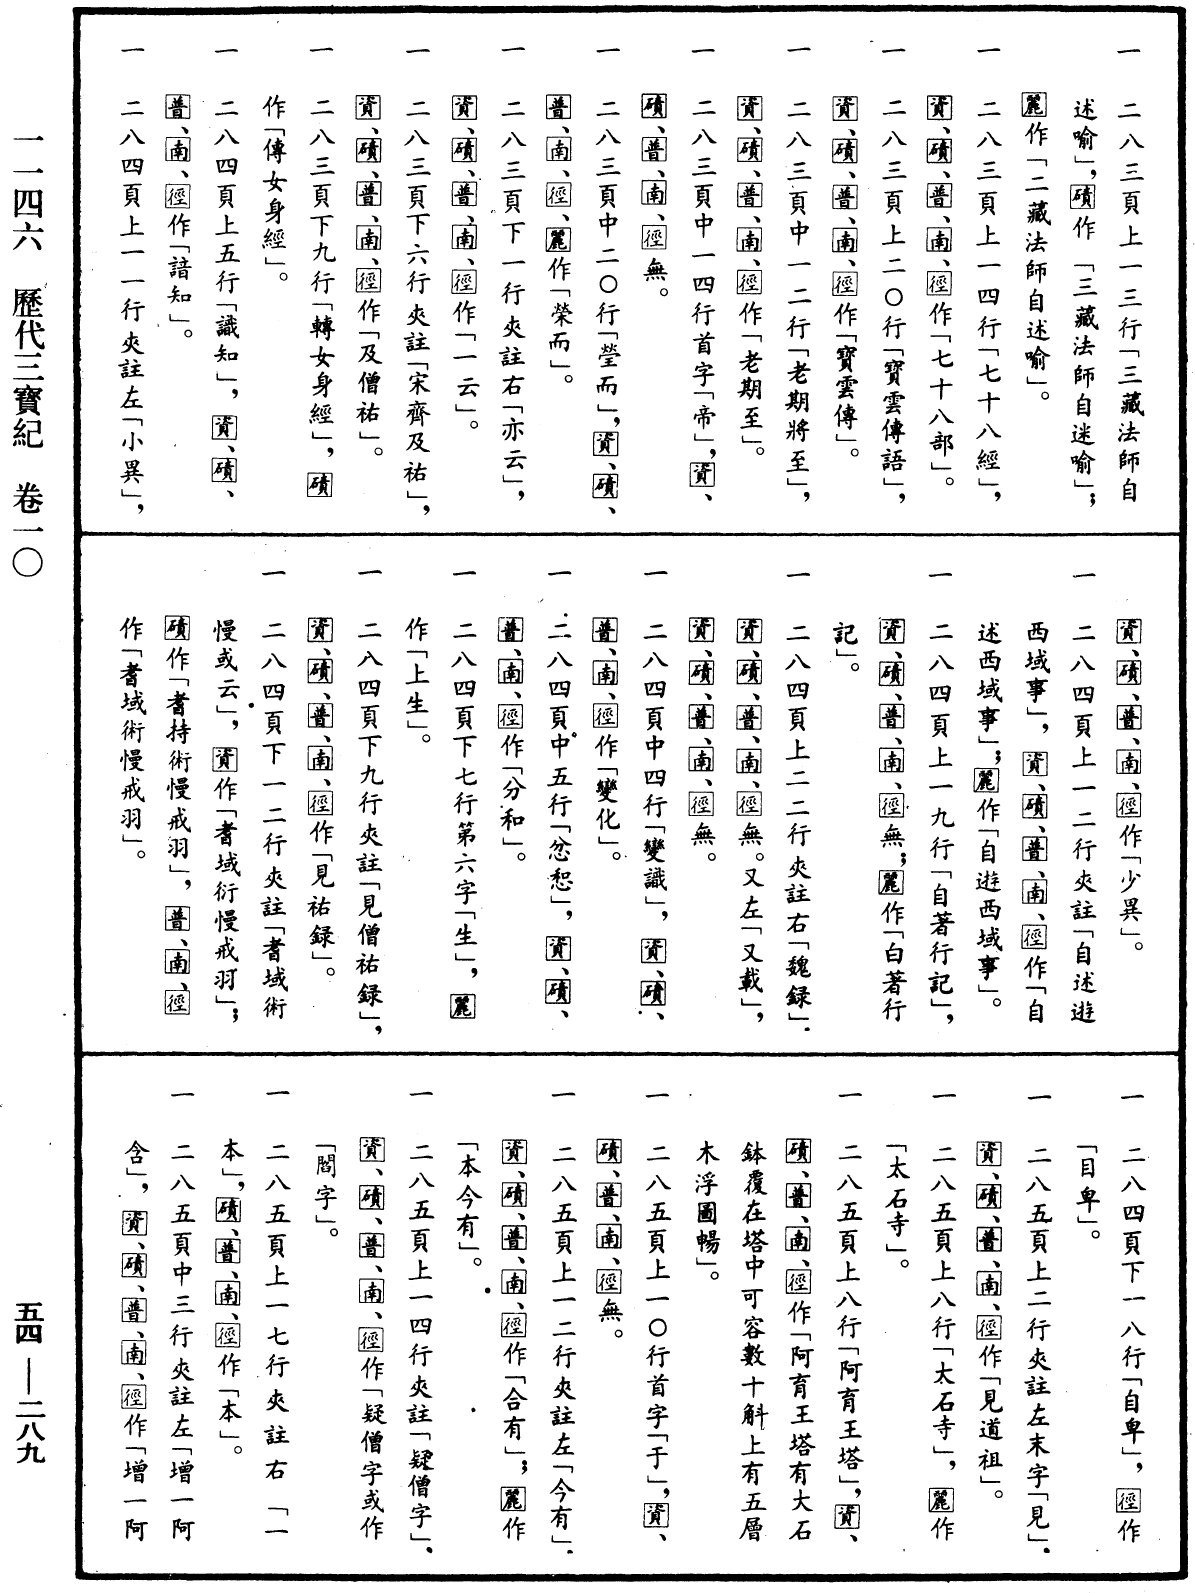 一一四六　歷代三寶紀　卷一〇
五四——二八九
一　二八三頁上一三行「三藏法師自
述喻」，磧作「三藏法師自迷喻」；
麗作「二藏法師自述喻」。
一　二八三頁上一四行「七十八經」，
資、磧、普、南、徑作「七十八部」。
一　二八三頁上二〇行「寶雲傳語」，
資、磧、普、南、徑作「寶雲傳」。
一　二八三頁中一二行「老期將至」，
資、磧、普、南、徑作「老期至」。
一　二八三頁中一四行首字「帝」，資、
磧、普、南、徑無。
一　二八三頁中二〇行「瑩而」，資、磧、
普、南、徑、麗作「榮而」。
一　二八三頁下一行夾註右「亦云」，
資、磧、普、南、徑作「一云」。
一　二八三頁下六行夾註「宋齊及祐」，
資、磧、普、南、徑作「及僧祐」。
一　二八三頁下九行「轉女身經」，磧
作「傳女身經」。
一　二八四頁上五行「識知」，資、磧、
普、南、徑作「諳知」。
一　二八四頁上一一行夾註左「小異」，
資、磧、普、南、徑作「少異」。
一　二八四頁上一二行夾註「自述遊
西域事」，資、磧、普、南、徑作「自
述西域事」；麗作「自遊西域事」。
一　二八四頁上一九行「自著行記」，
資、磧、普、南、徑無；麗作「白著行
記」。
一　二八四頁上二二行夾註右「魏録」，
資、磧、普、南、徑無。又左「又載」，
資、磧、普、南、徑無。
一　二八四頁中四行「變識」，資、磧、
普、南、徑作「變化」。
一　二八四頁中五行「忿恕」，資、磧、
普、南、徑作「分和」。
一　二八四頁下七行第六字「生」，麗
作「上生」。
一　二八四頁下九行夾註「見僧祐録」，
資、磧、普、南、徑作「見祐録」。
一　二八四頁下一二行夾註「耆域術
慢或云」，資作「耆域衍慢戒羽」；
磧作「耆持術慢戒羽」，普、南、徑
作「耆域術慢戒羽」。
一　二八四頁下一八行「自卑」，徑作
「目卑」。
一　二八五頁上二行夾註左末字「見」，
資、磧、普、南、徑作「見道祖」。
一　二八五頁上八行「太石寺」，麗作
「太石寺」。
一　二八五頁上八行「阿育王塔」，資、
磧、普、南、徑作「阿育王塔有大石
鉢覆在塔中可容數十斛上有五層
木浮圖暢」。
一　二八五頁上一〇行首字「于」，資、
磧、普、南、徑無。
一　二八五頁上一二行夾註左「今有」，
資、磧、普、南、徑作「合有」；麗作
「本今有」。
一　二八五頁上一四行夾註「疑僧字」，
資、磧、普、南、徑作「疑僧字或作
「閻字」。
一　二八五頁上一七行夾註右「一
本」，磧、普、南、徑作「本」。
一　二八五頁中三行夾註左「增一阿
含」，資、磧、普、南、徑作「增一阿